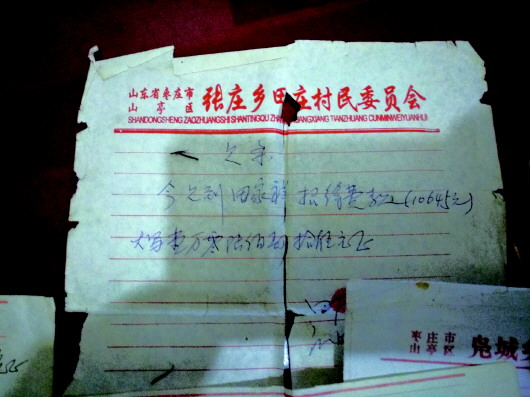 山东省枣庄市
山亭区 张庄乡田庄村民委员会
SHANDONGSHENG ZAOZHUANGSHI SHANTINGQU ZHANGZHUANGXIANG TIANZHUANG CUNMINWEIYUANHUI
欠条
今欠到田家祥招待费款(10645元)
大写壹万零陆佰肆拾伍元正
枣庄市
山亭区 凫城